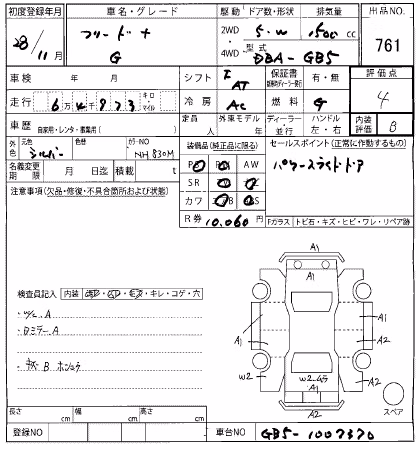 初度登録年月 車名・グレード 駆動 ドア数・形状 排気量 出品NO.
28/11月 フリード+ G 2WD 4WD 5・W 1500cc 761
型式 DBA-GB5
車検 年 月 シフト F AT 保証書 有・無 評価点 4
走行 6万4923 キロ・マイル 冷房 AC 燃料 G
車歴 自家用・レンタ・事業用( ) 定員 人 外車モデル 年 ディーラー 並行 ハンドル 左・右 内装評価 B
外色 元色 シルバー 色 カラーNO NH830M 装備品(純正品に限る) セールスポイント(正常に作動するもの)
名義変更期限 月 日迄 積載 t AW パワースライドドア
注意事項(欠品・修復・不具合箇所および状態) SR
カワ
R券 10.060円 Fガラス・トビ石・キズ・ヒビ・ワレ・リペア跡
A1
検査員記入 内装 キレ・コゲ・穴
W/L A
Dミラー A
B ホシュウ
A1 A1
A1 A2
W2 A2
A2
スペア
長さ cm 幅 cm 高さ cm
登録NO 車台NO. GB5-1007370